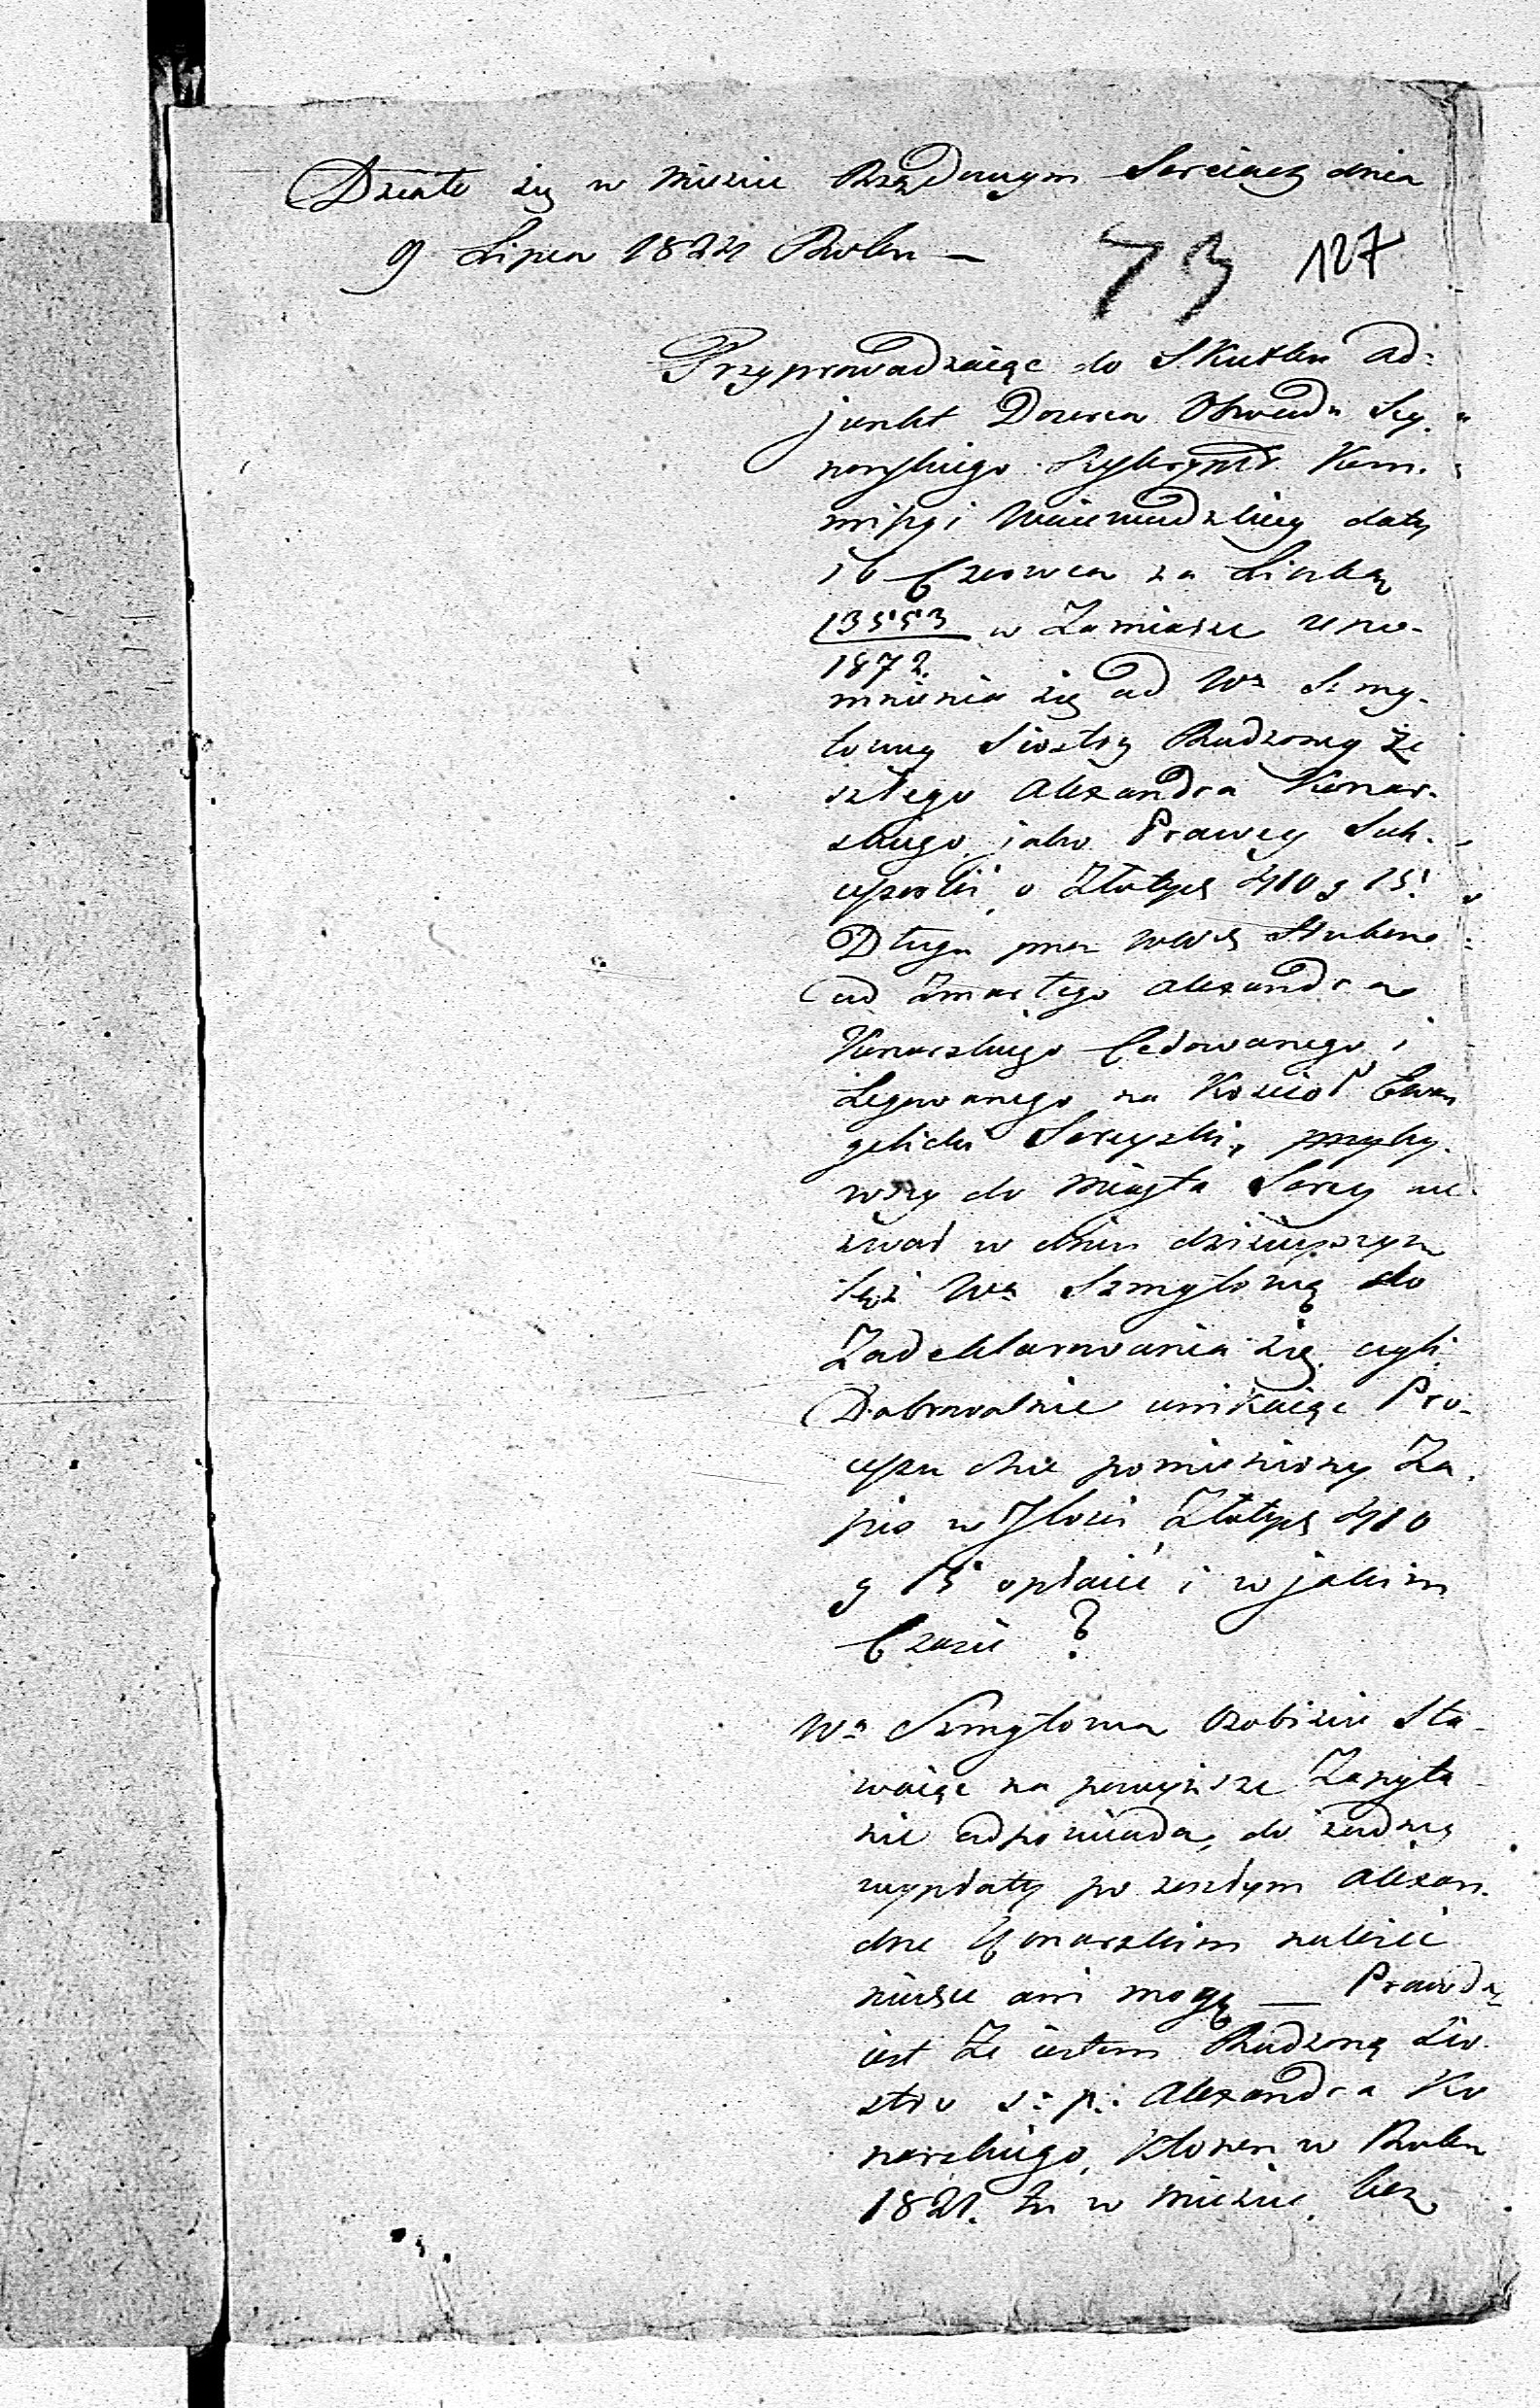 Działo się w Mieście Rządowym Sereiach dnia
9 Lipca 1824 Roku —
73 127
Przyprowadzaiąc do Skutku Ad-
junkt Dozorca Obwodu Sey-
neyskiego Reskrypt Kom-
missyi Woiewodzkiey daty
16 Czerwca za Liczbą
13553
1872
w Zamiarze upo-
mnienia się od Wey Szmy-
towey Siostry Rodzoney Ze
szłego Alexandra Konar-
skiego, jako Prawey Suk-
cessorki, o Złotych 410 g 15.
Długu przez
od Zmarłego Alexandra
Konarskiego Cedowanego i
Legowanego na Koscioł Ewan
gelicki Sereyski, przyby-
wszy do Miasta Serey we-
zwał w dniu dzisieyszym
też Wą Szmytową do
Zadeklarowania się czyli
Dobrowolnie unikaiąc Pro-
cessu chce pomieniony Za-
pis w Jlosci Złotych 410
g 15 opłacić i w jakim
Czasie?
Wa Szmytowa Osobiscie Sta-
waiąc na powyższe Zapyta-
nie odpowiada, do żadney
wypłaty po zeszłym Alexan-
drze Konarskim należeć
niechce ani mogę — Prawdą
iest Ze iestem Rodzoną Sio-
strą s: p: Alexandra Ko
narskiego, Ktoren w Roku
1821. tu w Miescie, bez